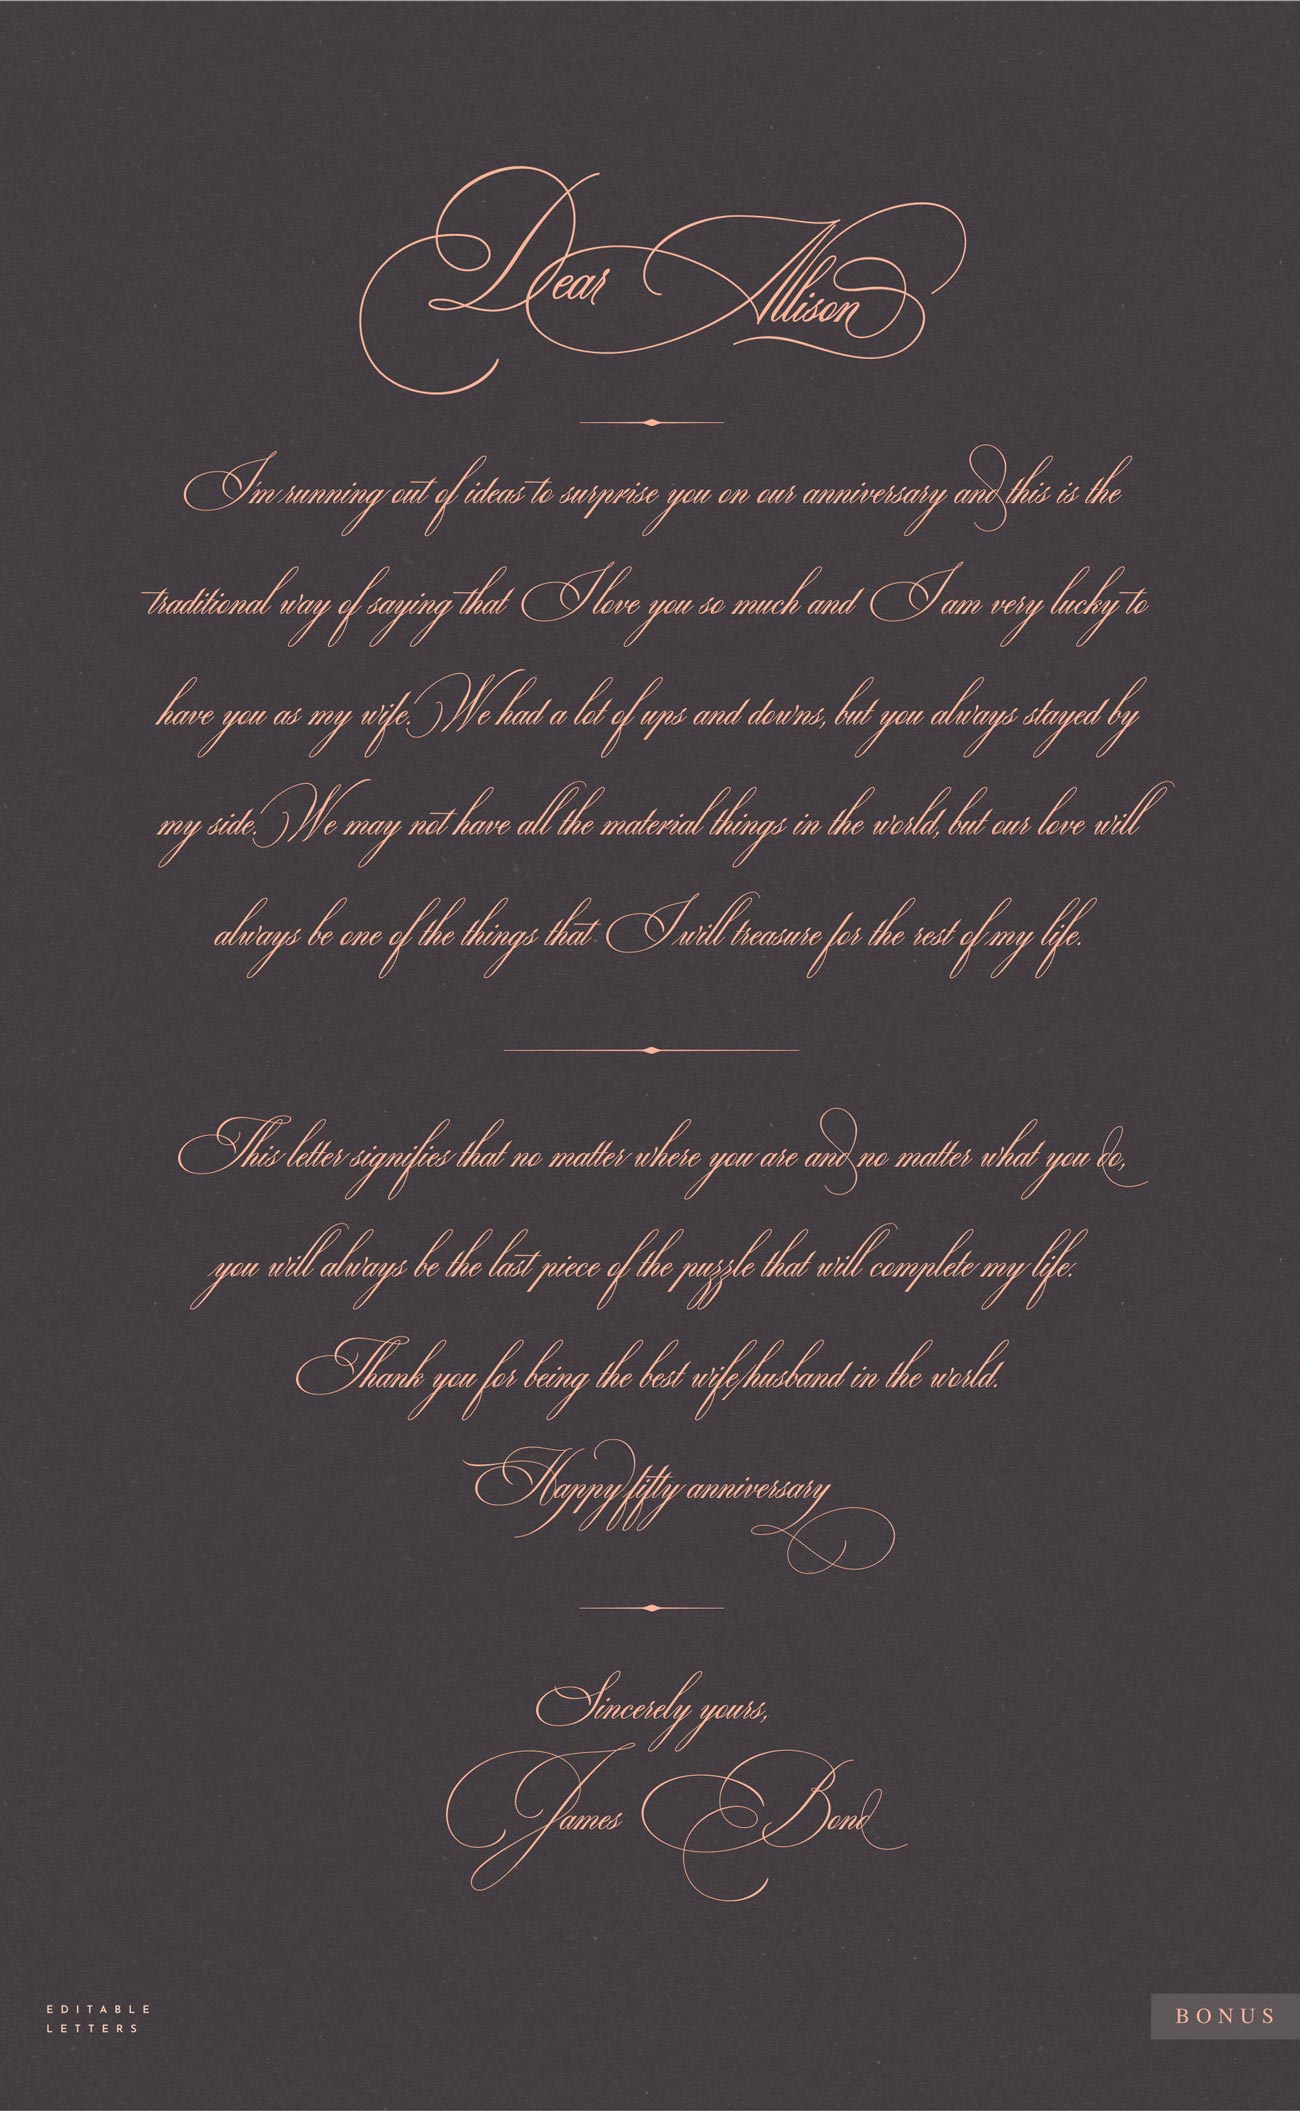 Dear Allison
I'm running out of ideas to surprise you on our anniversary and this is the
traditional way of saying that I love you so much and I am very lucky to
have you as my wife. We had a lot of ups and downs, but you always stayed by
my side. We may not have all the material things in the world, but our love will
always be one of the things that I will treasure for the rest of my life.
This letter signifies that no matter where you are and no matter what you do,
you will always be the last piece of the puzzle that will complete my life.
Thank you for being the best wife/husband in the world.
Happy fifty anniversary
Sincerely yours,
James Bond
EDITABLE
LETTERS
BONUS